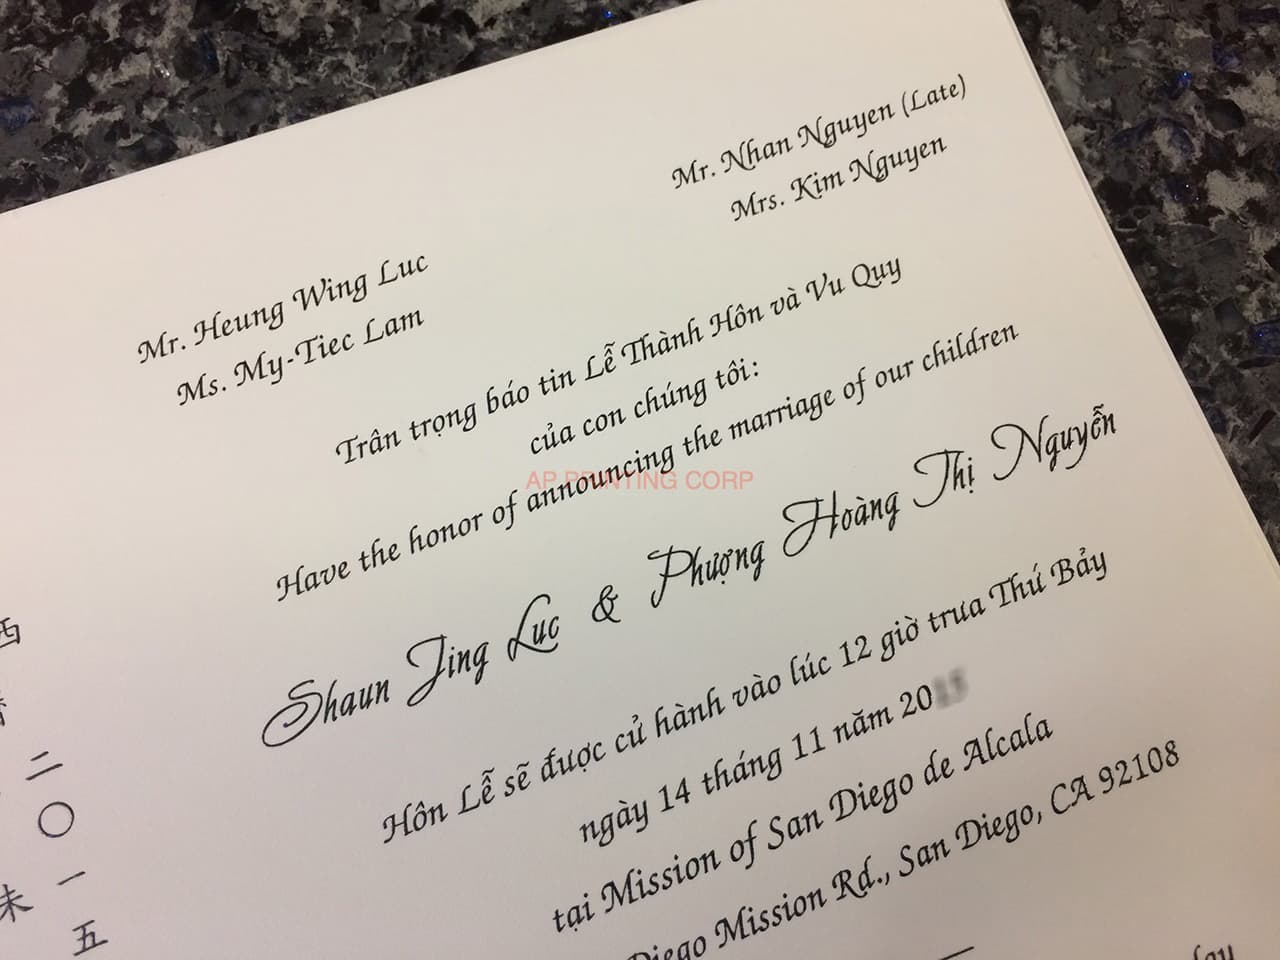 Mr. Nhan Nguyen (Late)
Mrs. Kim Nguyen
Mr. Heung Wing Luc
Ms. My-Tiec Lam
Trân trọng báo tin Lễ Thành Hôn và Vu Quy
của con chúng tôi:
Have the honor of announcing the marriage of our children
AP PRINTING CORP
Shaun Jing Luc & Phượng Hoàng Thị Nguyễn
Hôn Lễ sẽ được cử hành vào lúc 12 giờ trưa Thứ Bảy
ngày 14 tháng 11 năm 20
tại Mission of San Diego de Alcala
Diego Mission Rd., San Diego, CA 92108
二〇一五
西
未